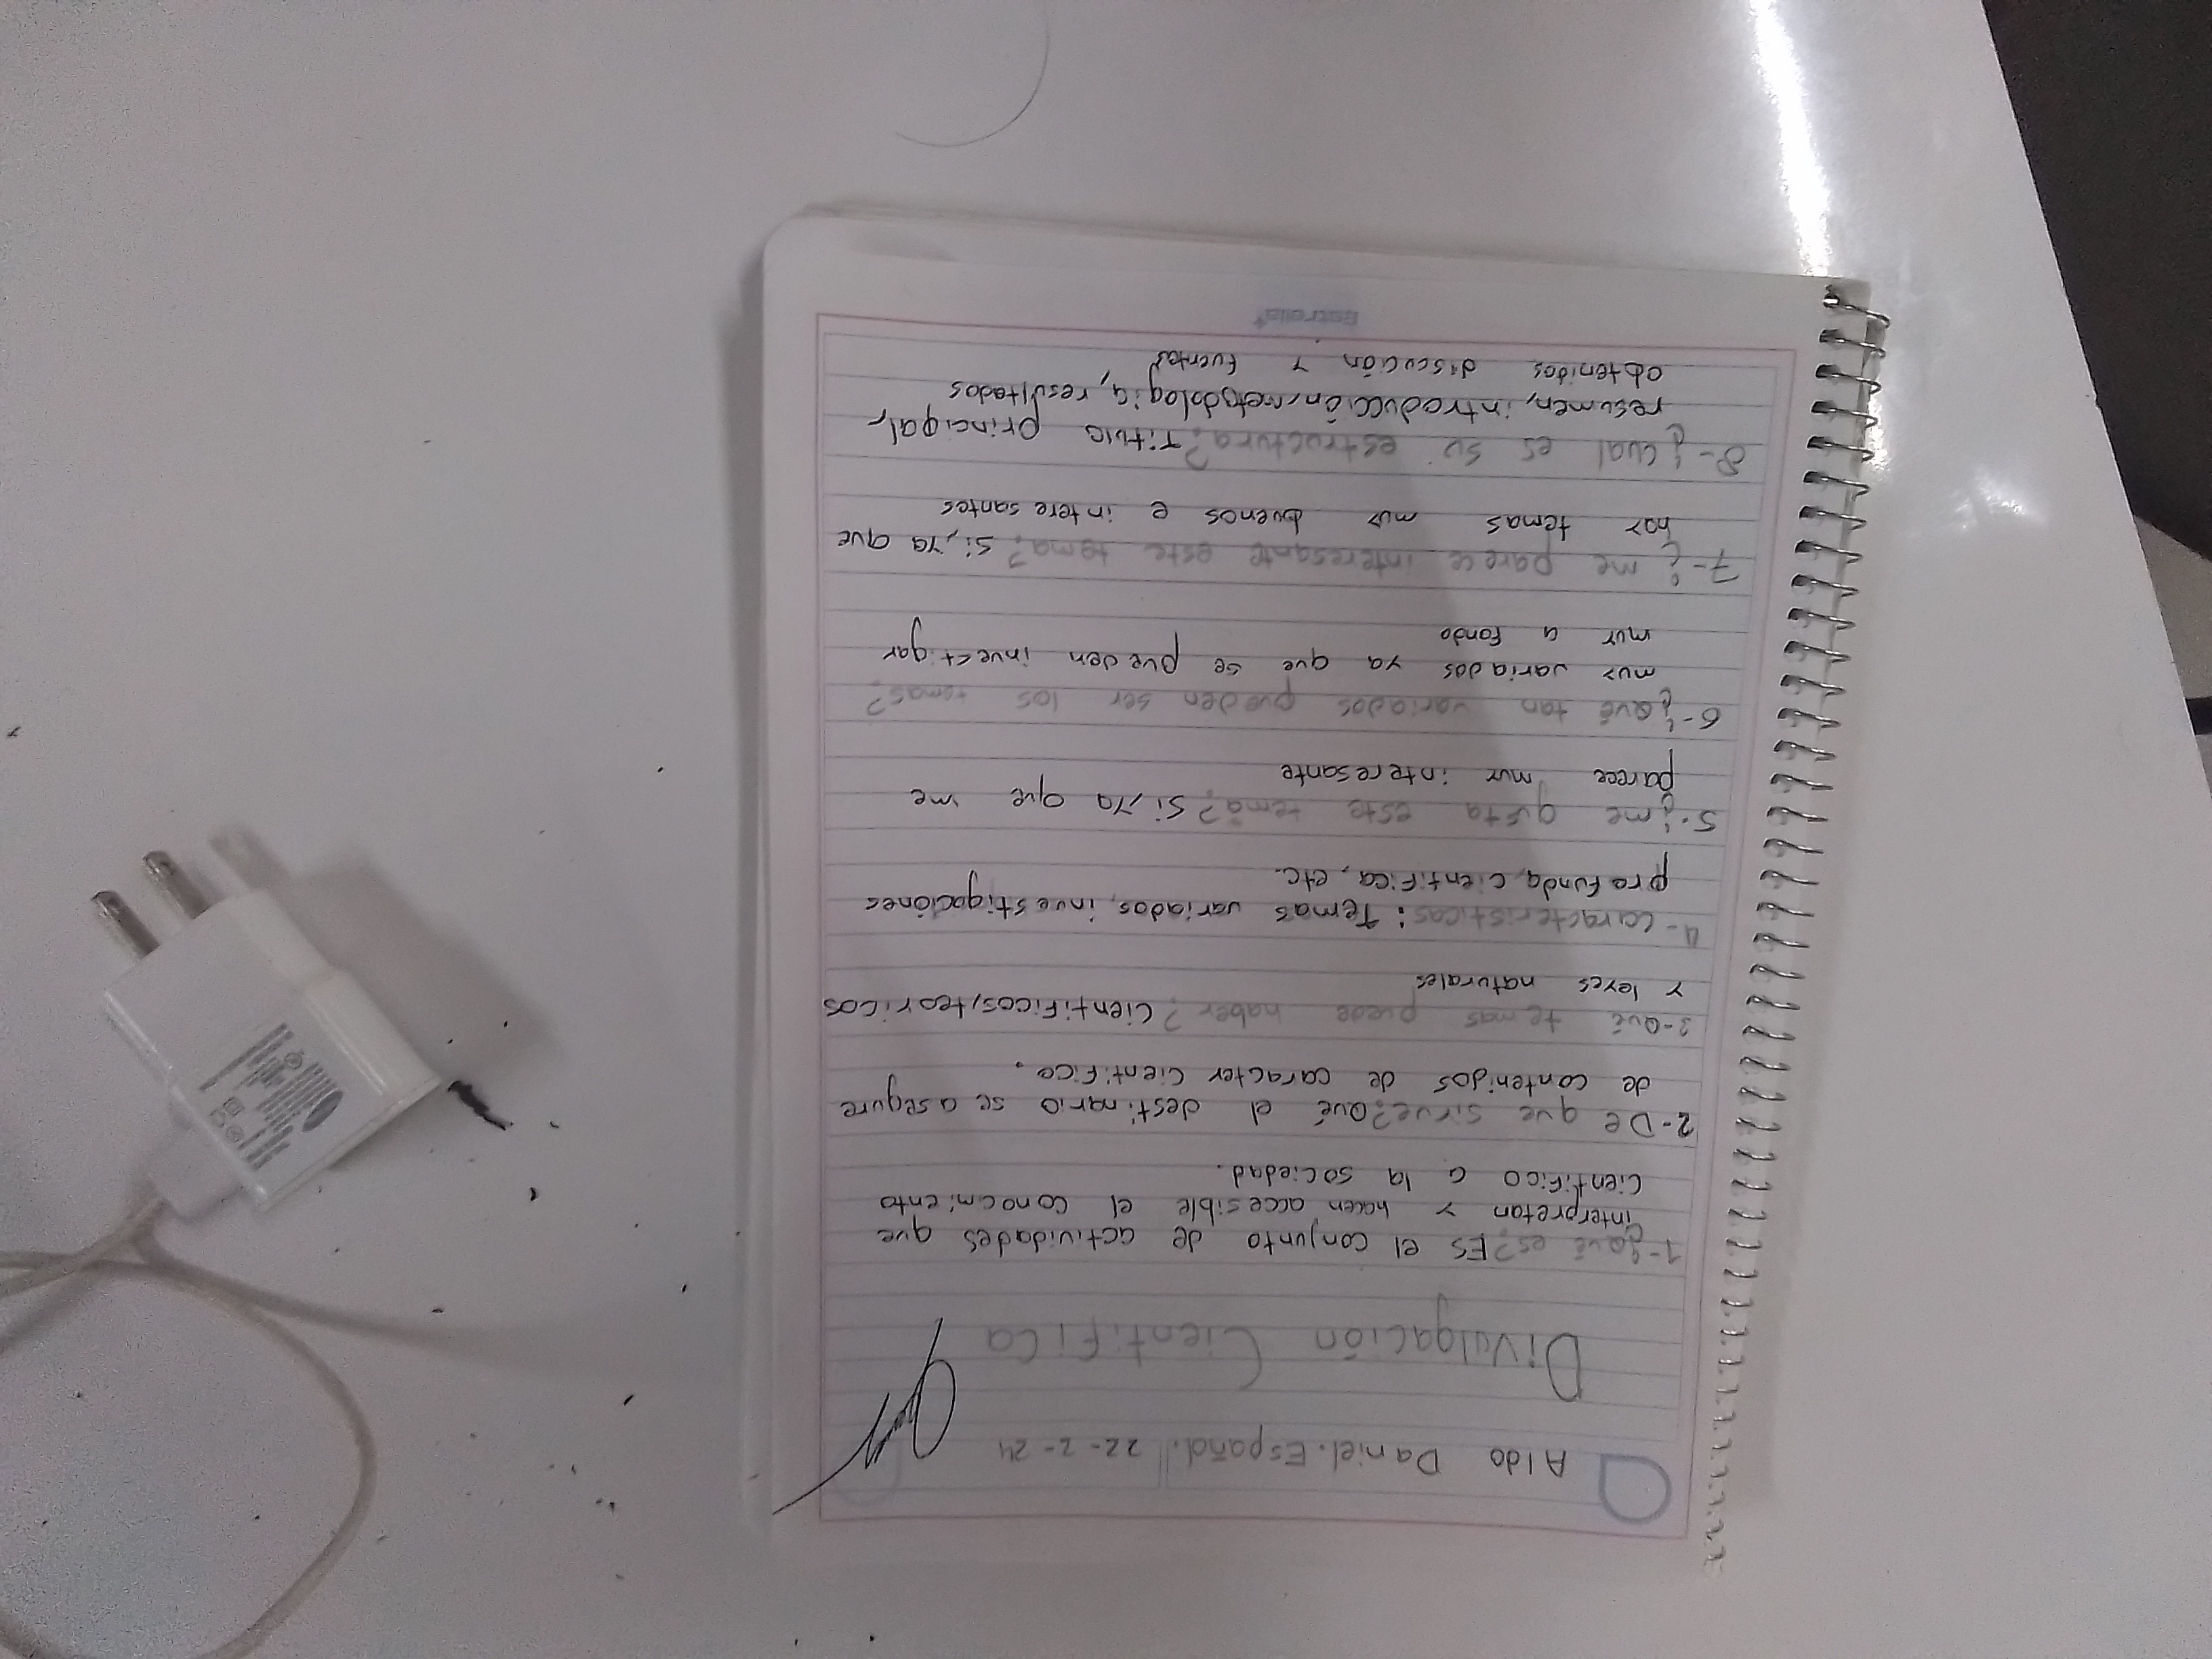 Aldo Daniel. Español. 22-2-24
Divulgación Cientifica
1-¿Qué es? ES el conjunto de actividades que
interpretan y hacen accesible el conocimiento
cientifico a la sociedad.
2-De que sirve? Qué el destinario se asegure
de contenidos de caracter cientifico.
3-Qué temas puede haber? Cientificos, teoricos
y leyes naturales
4-Caracteristicas: Temas variados, investigaciónes
profunda, cientifica, etc.
5-¿me gusta este tema? Si, ya que me
parece muy interesante
6-¿Qué tan variados pueden ser los temas?
muy variados ya que se pueden investigar
muy a fondo
7-¿me parece interesante este tema? si, ya que
hay temas muy buenos e interesantes
8-¿cual es su estructura? Titulo principal,
resumen, introducción, metodologia, resultados
obtenidos discución y fuentes
Estrella